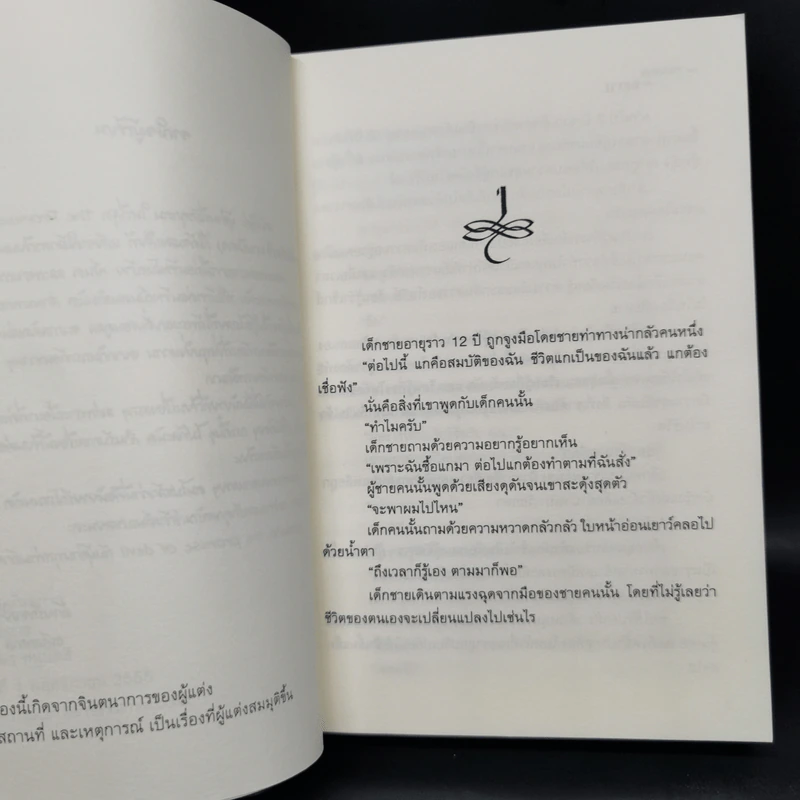 องนี้เกิดจากจินตนาการของผู้แต่ง
สถานที่ และเหตุการณ์ เป็นเรื่องที่ผู้แต่งสมมุติขึ้น
เด็กชายอายุราว 12 ปี ถูกจูงมือโดยชายท่าทางน่ากลัวคนหนึ่ง
“ต่อไปนี้ แกคือสมบัติของฉัน ชีวิตแกเป็นของฉันแล้ว แกต้อง
เชื่อฟัง”
นั่นคือสิ่งที่เขาพูดกับเด็กคนนั้น
“ทำไมครับ”
เด็กชายถามด้วยความอยากรู้อยากเห็น
“เพราะฉันซื้อแกมา ต่อไปแกต้องทำตามที่ฉันสั่ง”
ผู้ชายคนนั้นพูดด้วยเสียงดุดันจนเขาสะดุ้งสุดตัว
“จะพาผมไปไหน”
เด็กคนนั้นถามด้วยความหวาดกลัวกลัว ใบหน้าอ่อนเยาว์คลอไป
ด้วยน้ำตา
“ถึงเวลาก็รู้เอง ตามมาก็พอ”
เด็กชายเดินตามแรงฉุดจากมือของชายคนนั้น โดยที่ไม่รู้เลยว่า
ชีวิตของตนเองจะเปลี่ยนแปลงไปเช่นไร